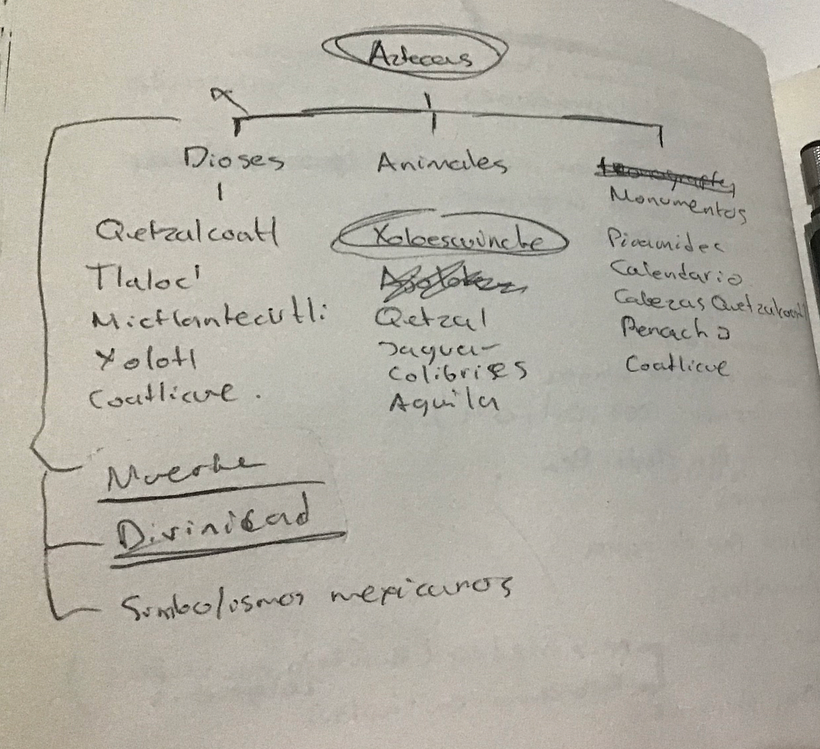 Aztecas
Dioses
Quetzalcoatl
Tlaloc
Mictlantecutli
Xolotl
Coatlicue.
Animales
Xoloescuincle
Qetzal
Jaguar
Colibries
Aguila
Monumentos
Piramides
Calendario
Cabezas Quetzalcoatl
Penacho
Coatlicue
Muerte
Divinidad
Simbolosmos mexicanos